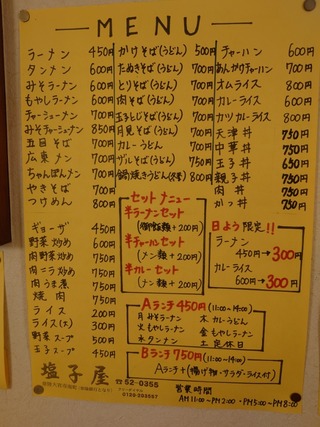 MENU
ラーナン 450円
タンナン 600円
みそラーナン 600円
もやしラーナン 600円
チャーシューナン 700円
みそチャーシューナン 850円
五目そば 700円
広東ナン 700円
ちゃんぽんナン 700円
やきそば 700円
つけめん 800円
ギョーザ 450円
野菜炒め 600円
肉野菜炒め 750円
肉ニラ炒め 750円
肉うま煮 750円
焼肉 750円
ライス 200円
ライス(大) 300円
野菜スープ 500円
玉子スープ 450円
かけそば(うどん) 500円
たぬきそば(うどん) 700円
とりそば(うどん) 700円
肉そば(うどん) 700円
玉子とじそば(うどん) 700円
月見そば(うどん) 700円
カレーうどん 700円
ザルそば(うどん) 750円
鍋焼きうどん(冬季) 800円
チャーハン 600円
あんかけチャーハン 700円
オムライス 800円
カレーライス 600円
カツカレーライス 800円
天津丼 750円
中華丼 750円
玉子丼 650円
親子丼 750円
肉丼 750円
かつ丼 750円
セットメニュー
半ラーナンセット
(御飯類+200円)
半チャーハンセット
(ナン類+200円)
半カレーセット
(ナン類+200円)
日よう限定!!
ラーナン
450円→300円
カレーライス
600円→300円
Aランチ450円(11:00~14:00)
月 みそラーナン 木 カレーうどん
火 もやしラーナン 金 もやしラーナン
水 タンナン 土 定休日
Bランチ750円(11:00~14:00)
Aランチ+(揚げ物・サラダ・ライス付)
塩子屋
☎52-0355
0120-293557
営業時間
AM11:00~PM2:00・PM5:00~PM8:00